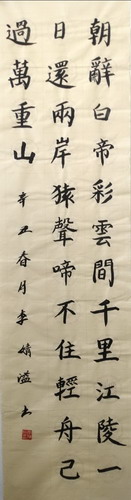 朝辭白帝彩雲間千里江陵一
日還兩岸猿聲啼不住輕舟已
過萬重山
辛丑春月李婧溢书